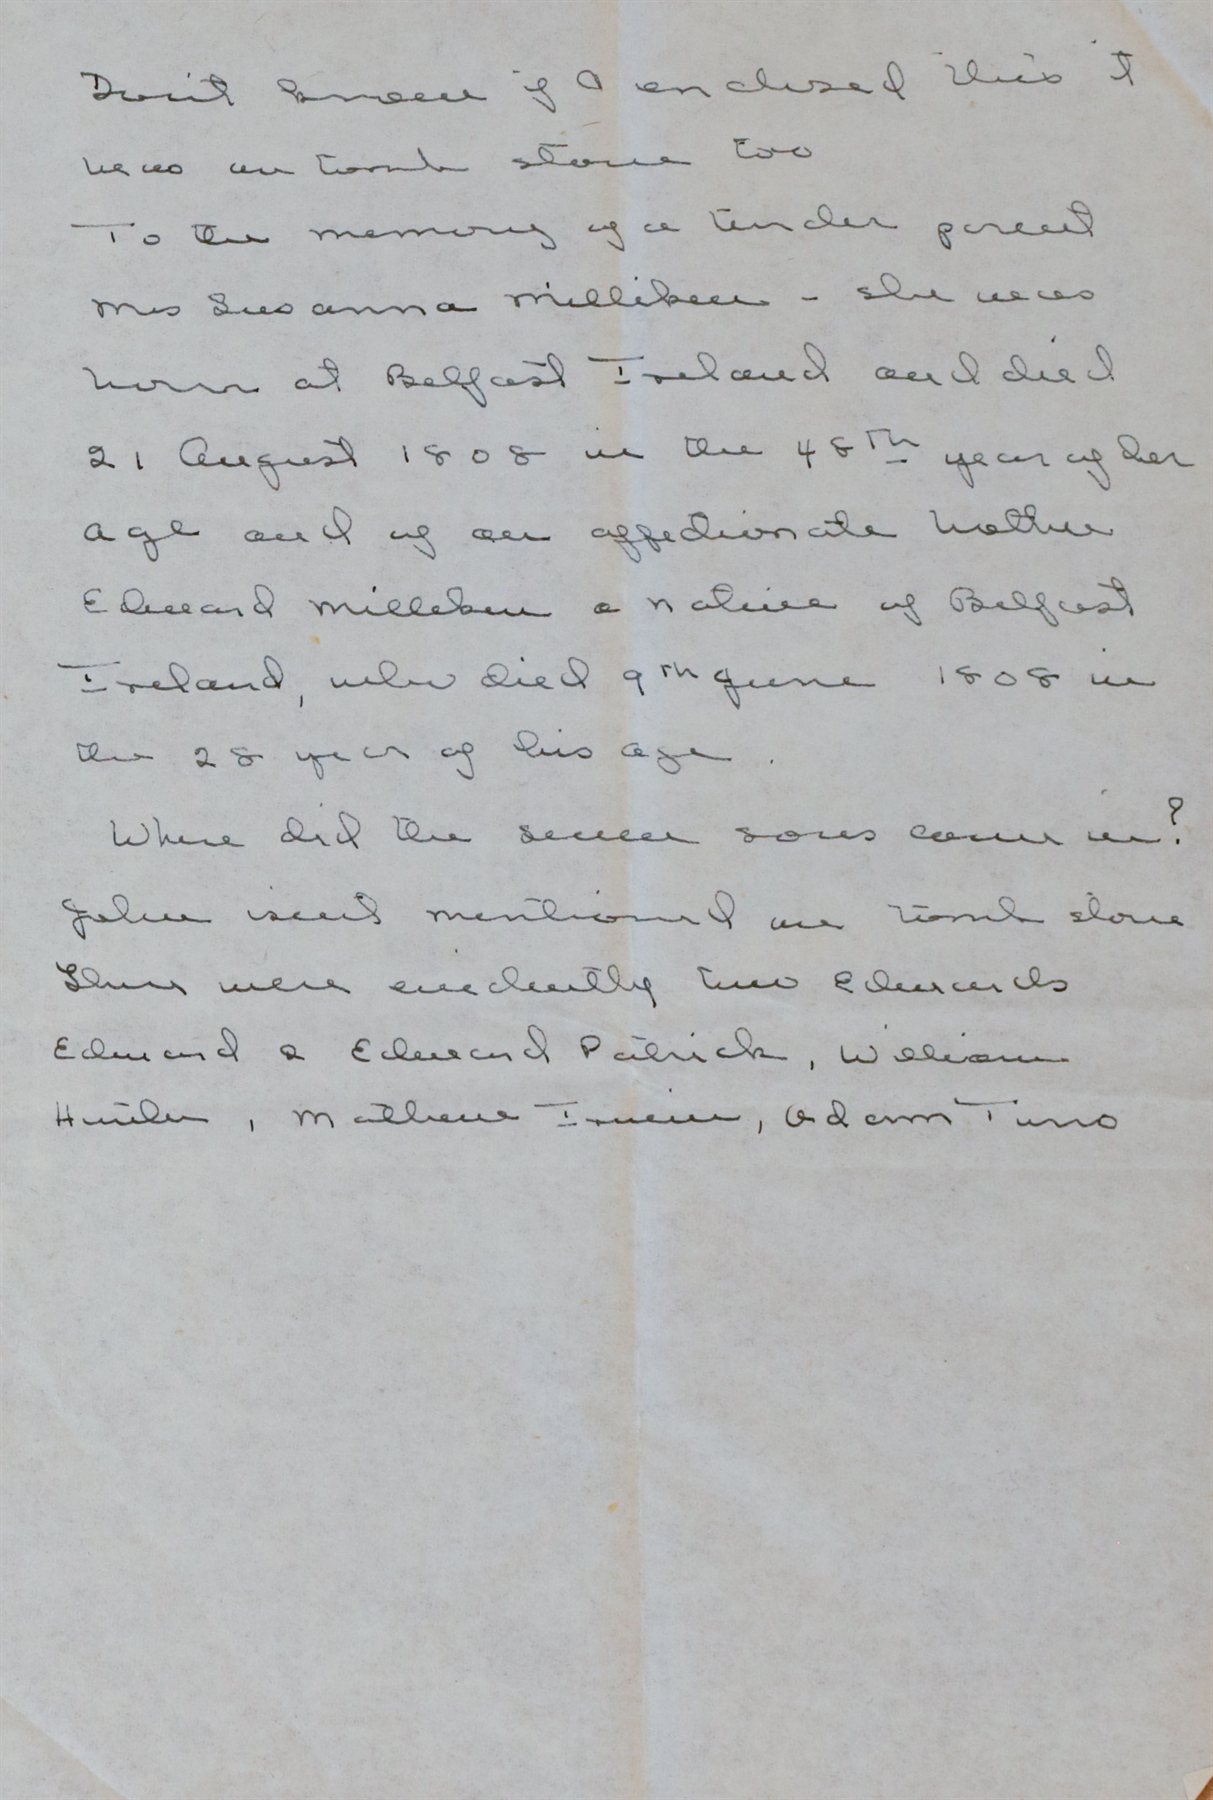 Don't know if I enclosed this it
was on tomb stone too
To the memory of a tender parent
Mrs Susanna Milliken - she was
born at Belfast Ireland and died
21 August 1808 in the 48th year of her
age and of an affectionate brother
Edward Milliken a native of Belfast
Ireland, who died 9th June 1808 in
the 28 year of his age.
Where did the seven sons come in?
John isn't mentioned on tomb stone
There were evidently two Edwards
Edward & Edward Patrick, William
Hunter, Mathew Irwin, Adam Tuno